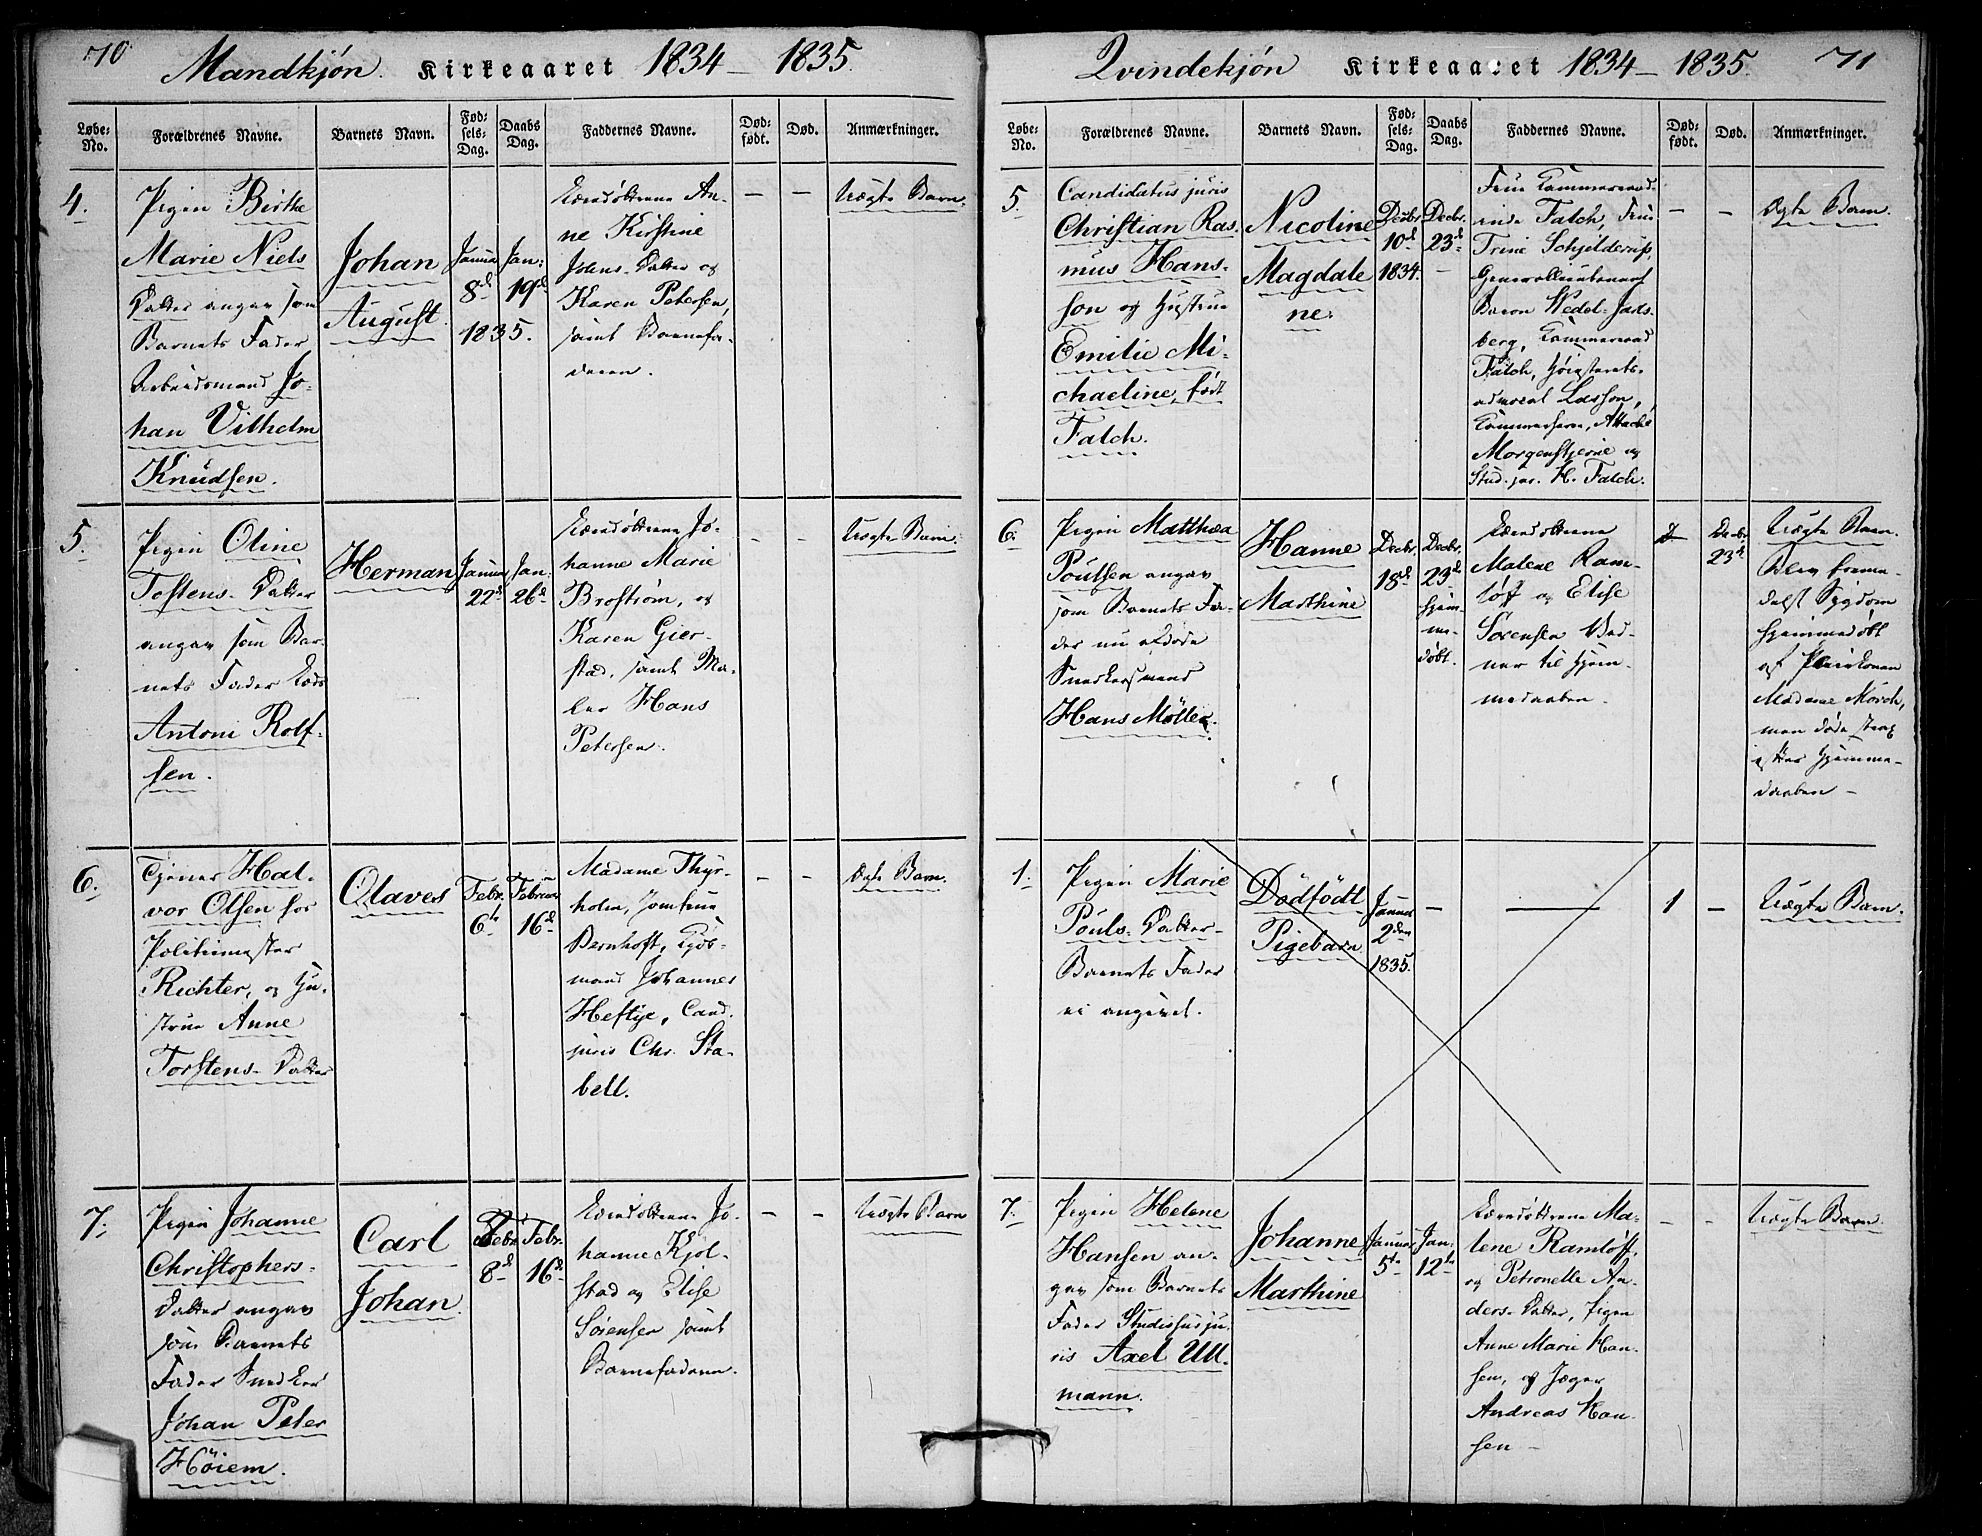 70
Mandkjøn. Kirkeaaret 1834 – 1835.
Løbe-No.
Forældrenes Navne.
Barnets Navn.
Fødsels-Dag.
Daabs Dag.
Faddernes Navne.
Dødfødt.
Død.
Anmærkninger.
4.
Pigen Birthe
Marie Niels
Datter angav som
Barnets Fader
Arbeidsmand Jo-
han Vilhelm
Knudsen.
Johan
August.
Januar
8de
1835.
Jan:
19de
An-
ne Kirstine
Johns-Datter og
Karen Petersen,
samt Barnefa-
deren.
– –
Uægte Barn.
5.
Pigen Oline
Tostens-Datter
angav som Bar-
nets Fader
Antoni Rolf-
sen.
Herman
Januar
22de
Jan:
26de
Jo-
hanne Marie
Brostrøm, og
Karen Gier-
stad, samt Ma-
ler Hans
Petersen.
– –
Uægte Barn.
6.
Tjener Hal-
vor Olsen hos
Politimester
Richter, og Hu-
strue Anne
Torstens-Datter
Olaves
Febr.
6te
Februar
16de
Madame Thyr-
holm, Jomfrue
Bernhoft, Kjøb-
mand Johannes
Heftye, Cand.
juris Chr. Sta-
bell.
– –
Ægte Barn.
7.
Pigen Johanne
Christophers-
Datter angav
som Barnets
Fader Snedker
Johan Peter
Höiem.
Carl
Johan.
Febr.
8de
Febr.
16de
Jo-
hanne Kjøl-
stad og Elise
Sörensen samt
Barnefaderen.
– –
Uægte Barn
71
Qvindekjøn Kirkeaaret 1834 – 1835.
Løbe-No.
Forældrenes Navne.
Barnets Navn.
Fødsels-Dag.
Daabs Dag.
Faddernes Navne.
Dødfødt.
Død.
Anmærkninger.
5.
Candidatus juris
Christian Ras-
mus Hans-
son og Hustrue
Emilie Mi-
chaeline, født
Falch.
Nicoline
Magdale
ne.
Decbr.
10de
1834.
Decbr.
23de
–
Frue Kammerraad-
inde Falch, Frue
Trine Schjelderup,
Generallieutenant
Baron Wedel-Jarls-
berg, Kammerraad
Falch, Höiesterets-
Lasson,
Attaché
Morgenstjerne og
Stud. jur. H. Falch.
– –
Ægte Barn.
6.
Pigen Matthæa
Poulsen angav
som Barnets Fa-
der nu afdøde
Snedkersvend
Hans Möller.
Hanne
Marthine
Decbr.
18de
Decbr.
23de
hjem-
me-
døbt.
Malene Ram-
løff og Elise
Sörensen Vid-
ner til Hjem-
medaaben.
Decbr
23de
Uægte Barn.
Blev forme-
delst Sygdom
hjemmedøbt
af
Madame Mörch,
men døde strax
efter Hjemme-
daaben –
1.
Pigen Marie
Pouls-Datter –
Barnets Fader
ei angivet.
Dødfödt
Pigebarn
Januar
2den
1835.
–
1
–
Uægte Barn.
7.
Pigen Helene
Hansen an-
gav som Barnets
Fader Studiosus ju-
ris Axel Ull-
mann.
Johanne
Marthine
Januar
5te
Jan:
12te
Ma-
lene Ramlöff,
og Petronelle An-
ders-Datter, Pigen
Anne Marie Han-
sen, og Jæger
Andreas Han-
sen –
– –
Uægte Barn.